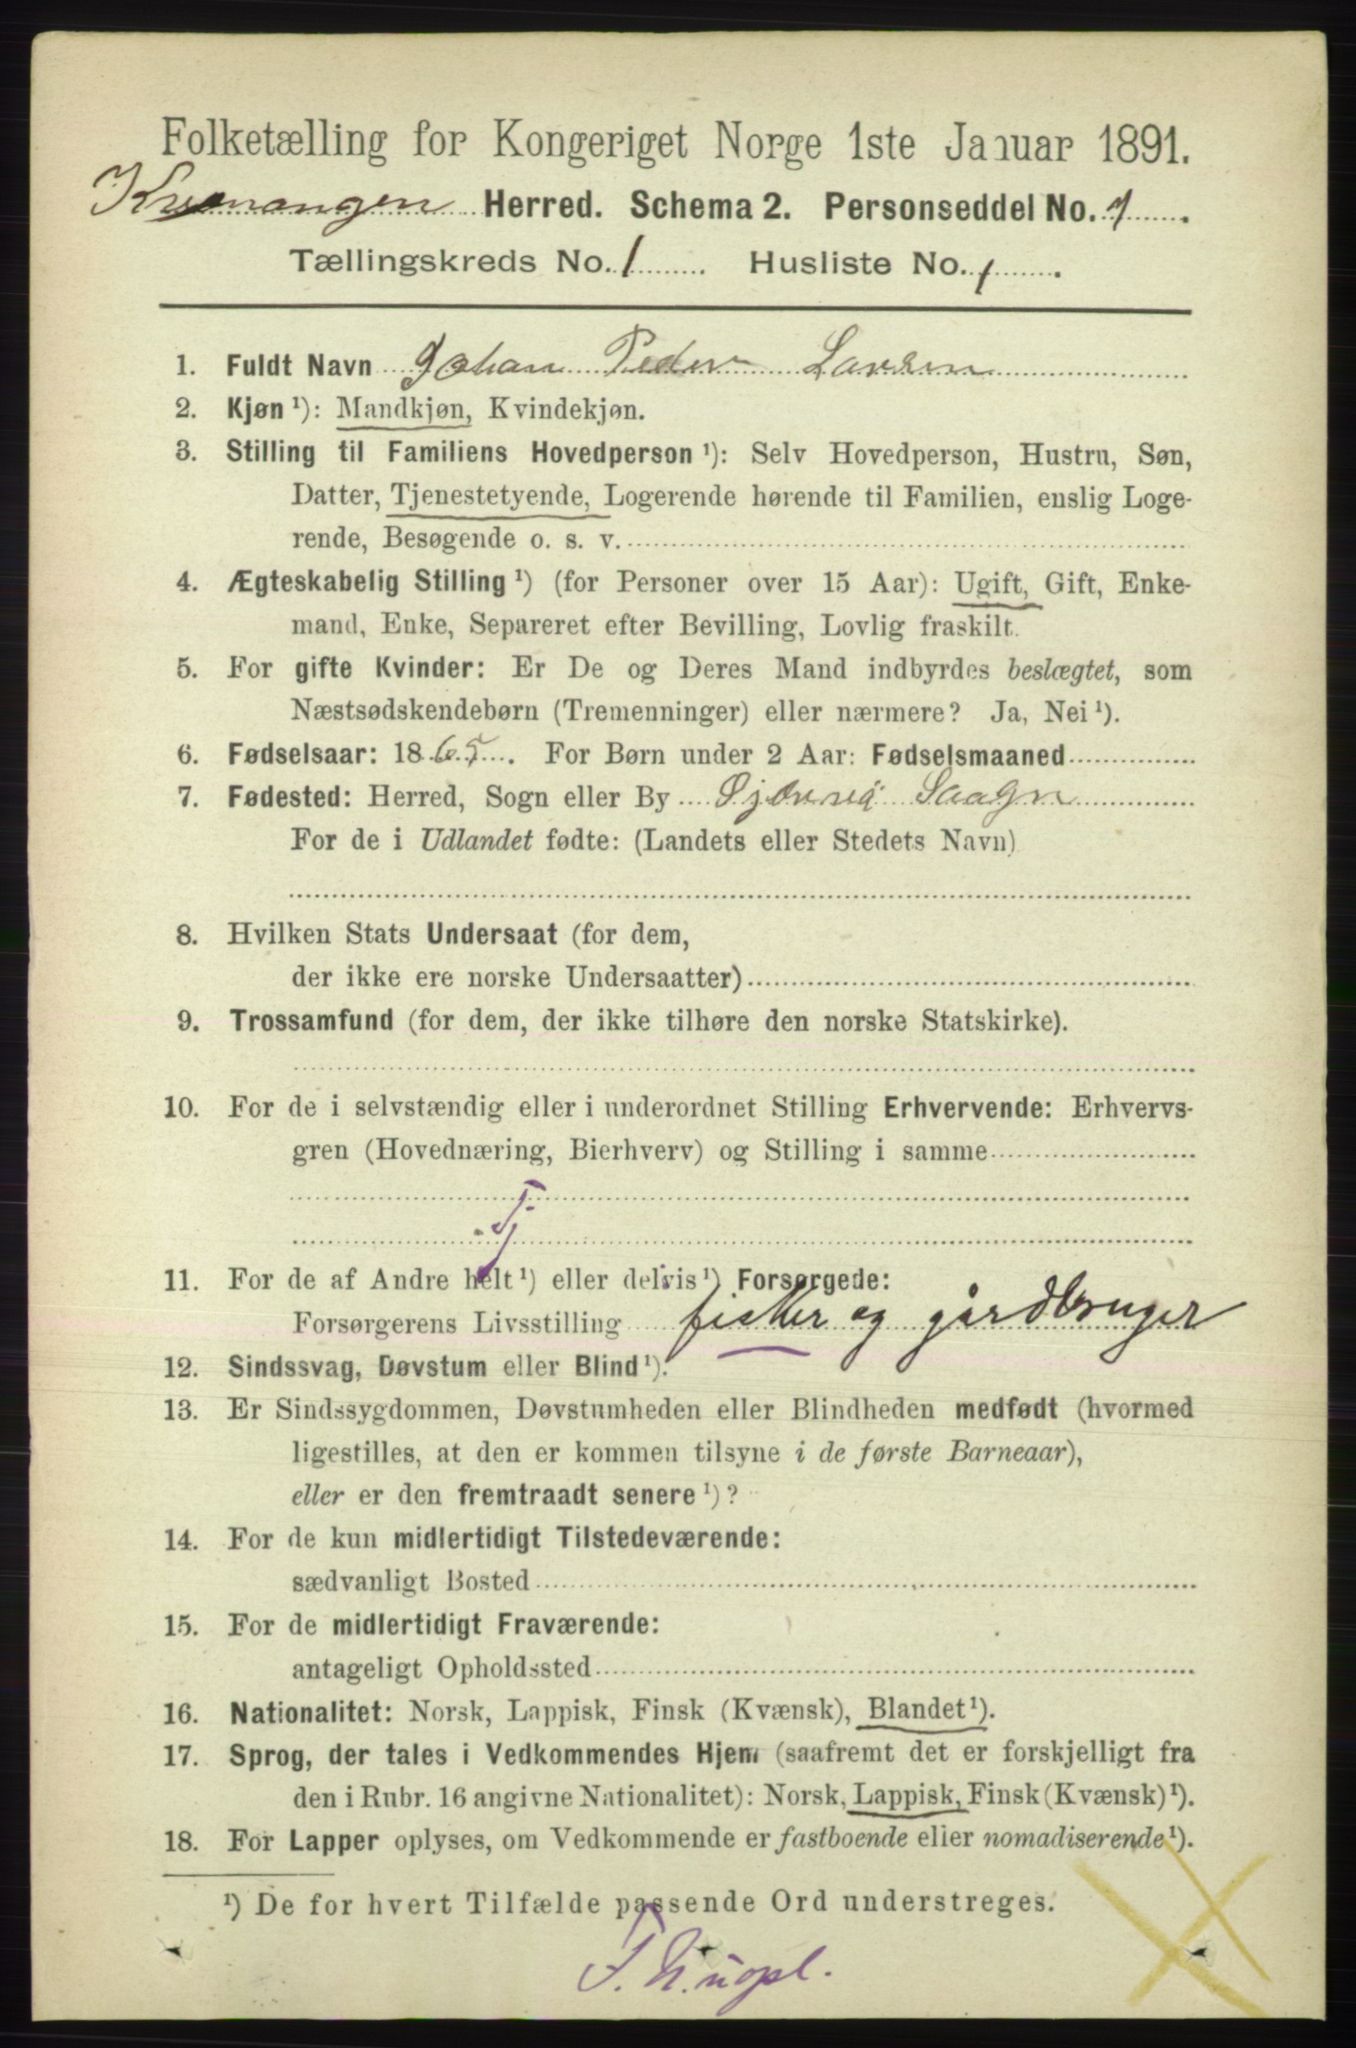 Folketælling for Kongeriget Norge 1ste Januar 1891.
Kvænangen Herred. Schema 2. Personseddel No. 7.
Tællingskreds No. 1. Husliste No. 1.
1. Fuldt Navn Johan Peder Larsen
2. Kjøn ¹): Mandkjøn, Kvindekjøn.
3. Stilling til Familiens Hovedperson ¹): Selv Hovedperson, Hustru, Søn,
Datter, Tjenestetyende, Logerende hørende til Familien, enslig Loge-
rende, Besøgende o. s. v.
4. Ægteskabelig Stilling ¹) (for Personer over 15 Aar): Ugift, Gift, Enke-
mand, Enke, Separeret efter Bevilling, Lovlig fraskilt.
5. For gifte Kvinder: Er De og Deres Mand indbyrdes beslægtet, som
Næstsødskendebørn (Tremenninger) eller nærmere? Ja, Nei ¹).
6. Fødselsaar: 1865. For Børn under 2 Aar: Fødselsmaaned
7. Fødested: Herred, Sogn eller By Sogn
For de i Udlandet fødte: (Landets eller Stedets Navn)
8. Hvilken Stats Undersaat (for dem,
der ikke ere norske Undersaatter)
9. Trossamfund (for dem, der ikke tilhøre den norske Statskirke).
10. For de i selvstændig eller i underordnet Stilling Erhvervende: Erhvervs-
gren (Hovednæring, Bierhverv) og Stilling i samme
Tj
11. For de af Andre helt ¹) eller delvis ¹) Forsørgede:
Forsørgerens Livsstilling fisker og gårdbruger
12. Sindssvag, Døvstum eller Blind ¹).
13. Er Sindssygdommen, Døvstumheden eller Blindheden medfødt (hvormed
ligestilles, at den er kommen tilsyne i de første Barneaar),
eller er den fremtraadt senere ¹)?
14. For de kun midlertidigt Tilstedeværende:
sædvanligt Bosted
15. For de midlertidigt Fraværende:
antageligt Opholdssted
16. Nationalitet: Norsk, Lappisk, Finsk (Kvænsk), Blandet ¹).
17. Sprog, der tales i Vedkommendes Hjem (saafremt det er forskjelligt fra
den i Rubr. 16 angivne Nationalitet): Norsk, Lappisk, Finsk (Kvænsk) ¹).
18. For Lapper oplyses, om Vedkommende er fastboende eller nomadiserende ¹).
¹) De for hvert Tilfælde passende Ord understreges.